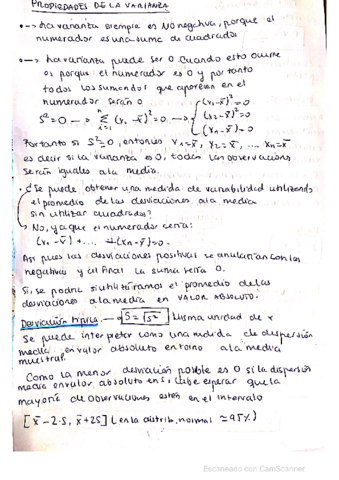 PROPIEDADES DE LA VARIANZA
•→ La varianza siempre es No negativa, porque el
numerador es una suma de cuadrados
•→ La varianza puede ser 0. Cuando esto ocurre
es porque el numerador es 0 y por tanto
todos los sumandos que aparecen en el
numerador serán 0
S²=0 → Σ (xᵢ-x̄)²=0 → { (x₁-x̄)²=0
(x₂-x̄)²=0
(xₙ-x̄)=0
Por tanto si S²=0, entonces x₁=x̄, x₂=x̄, ... xₙ=x̄
es decir si la varianza es 0, todas las observaciones
serán iguales a la media.
• ¿Se puede obtener una medida de variabilidad utilizando
el promedio de las desviaciones a la media
sin utilizar cuadrados?
→ No, ya que el numerador sería:
(x₁-x̄)+.... +(xₙ-x̄)=0.
Así pues las desviaciones positivas se anularían con las
negativas y al final la suma sería 0.
Si, se podría si utilizáramos el promedio de las
desviaciones a la media en VALOR ABSOLUTO.
Desviación típica → S=√S² Misma unidad de x
Se puede interpretar como una medida de dispersión
media en valor absoluto entorno a la media
muestral.
Como la menor desviación posible es 0 si la dispersión
media en valor absoluto en S, cabe esperar que la
mayoría de observaciones estén en el intervalo
[x̄-2·S, x̄+2S] (en la distrib. normal ≈95%)
Escaneado con CamScanner